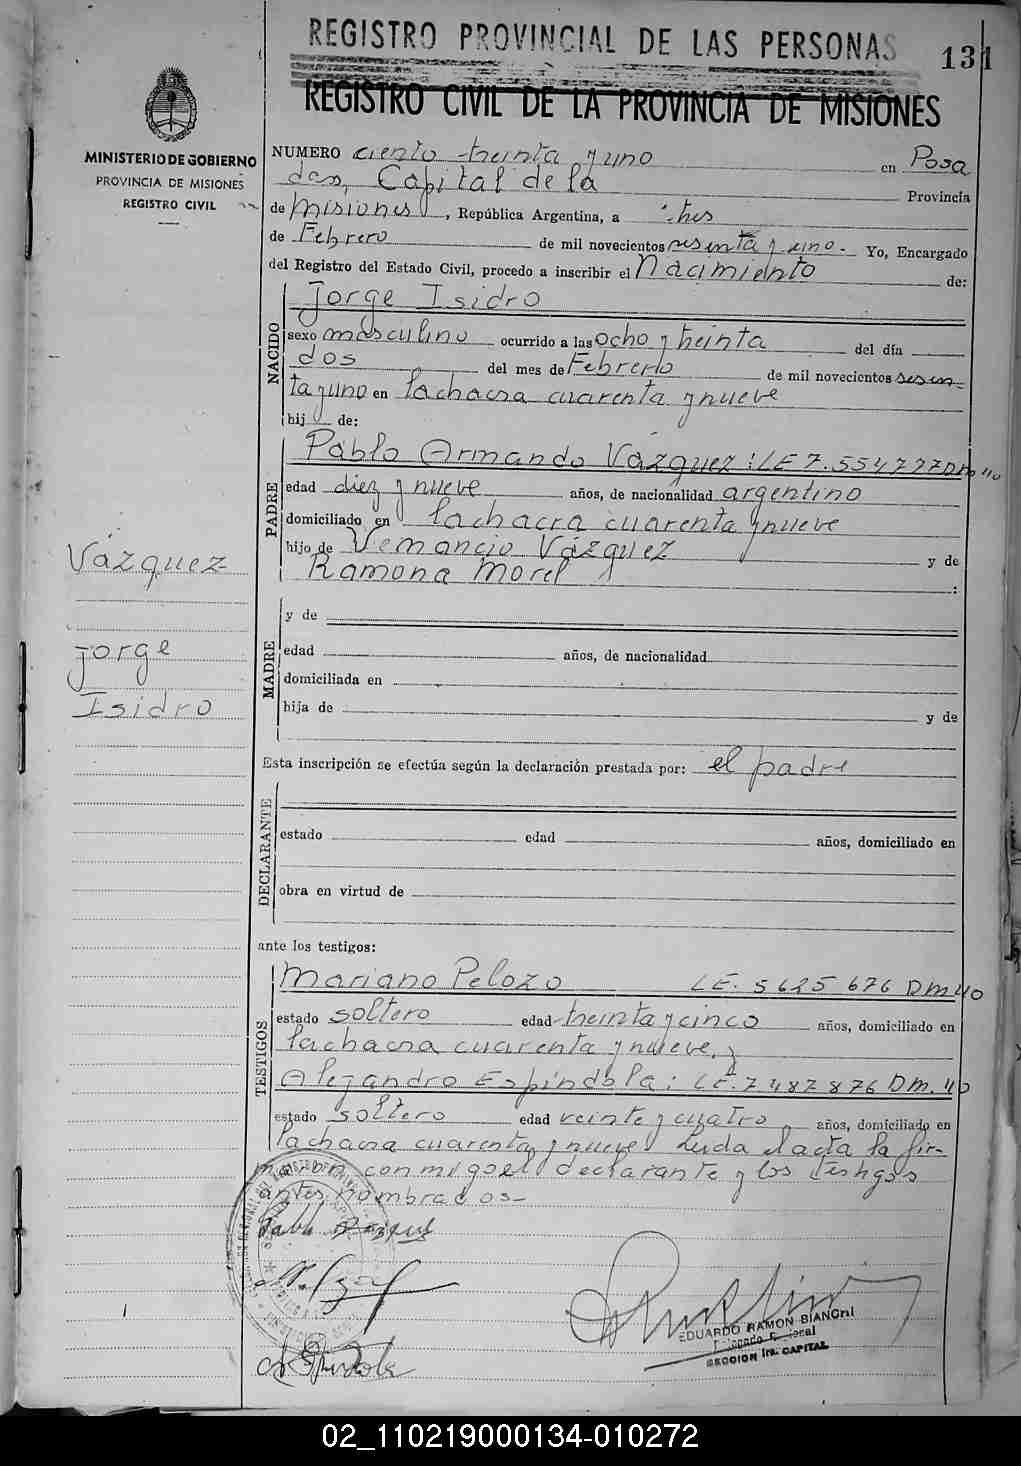 REGISTRO PROVINCIAL DE LAS PERSONAS
131
REGISTRO CIVIL DE LA PROVINCIA DE MISIONES
MINISTERIO DE GOBIERNO
PROVINCIA DE MISIONES
REGISTRO CIVIL
NUMERO ciento treinta y uno en Posa
das, Capital de la Provincia
de Misiones, República Argentina, a tres
de Febrero de mil novecientos sesenta y uno. Yo, Encargado
del Registro del Estado Civil, procedo a inscribir el Nacimiento de:
NACIDO
Jorge Isidro
sexo masculino ocurrido a las ocho y treinta del día
dos del mes de Febrero de mil novecientos sesen-
ta y uno en la chacra cuarenta y nueve
hij de:
PADRE
Pablo Armando Vázquez: LE 7.554777 DM 40
edad diez y nueve años, de nacionalidad argentino
domiciliado en la chacra cuarenta y nueve
hijo de Vemancio Vázquez y de
Ramona Morel :
Vázquez
Jorge
Isidro
MADRE
y de
edad años, de nacionalidad
domiciliada en
hija de y de
Esta inscripción se efectúa según la declaración prestada por: el padre
DECLARANTE
estado edad años, domiciliado en
obra en virtud de
ante los testigos:
TESTIGOS
Mariano Pelozo LE. 5625 676 DM 40
estado soltero edad treinta y cinco años, domiciliado en
la chacra cuarenta y nueve, y
Alejandro Espíndola: LE. 7487876 DM. 40
estado soltero edad veinte y cuatro años, domiciliado en
la chacra cuarenta y nueve Leida el acta la fir-
man con migo el declarante y los testigos
antes nombrados-
EDUARDO RAMON BIANCHI
SECCION 1ra. CAPITAL
02_110219000134-010272